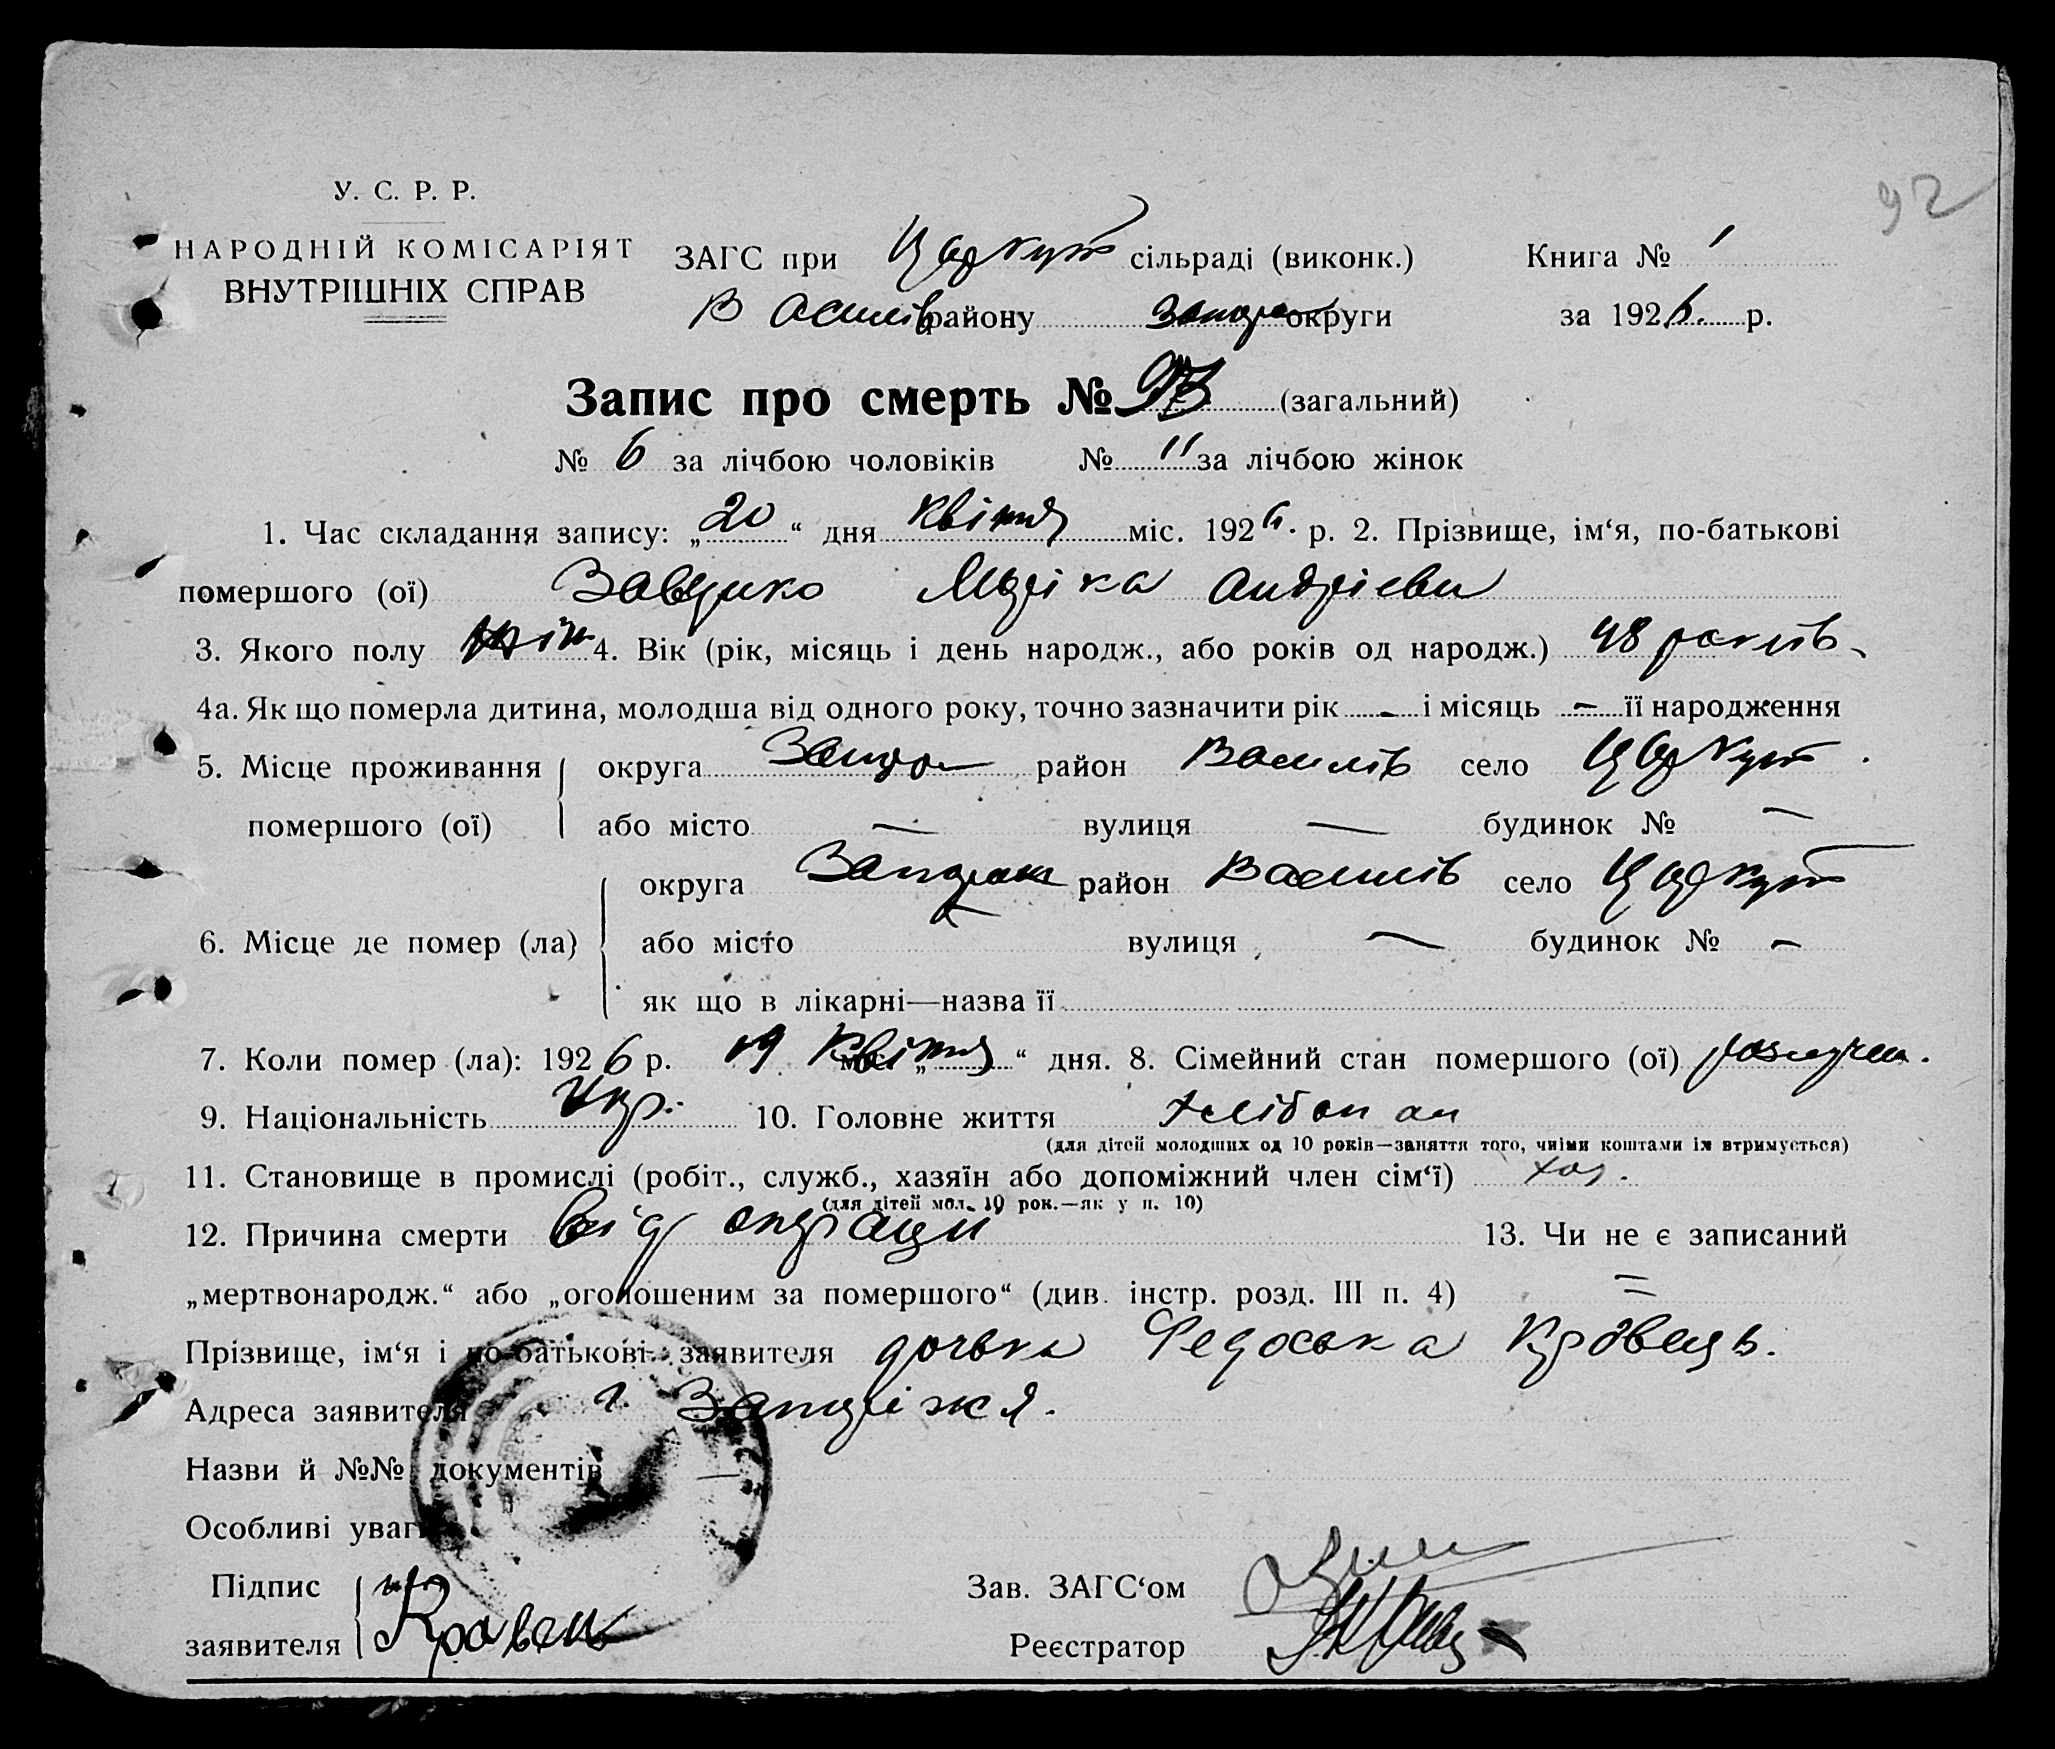 92
У. С. Р. Р.
НАРОДНІЙ КОМІСАРІЯТ
ВНУТРІШНІХ СПРАВ
ЗАГС при Царкут сільраді (виконк.)
Василів району Запор округи
Книга № 1
за 1926. р.
Запис про смерть № (загальний)
№ 6 за лічбою чоловіків № 11 за лічбою жінок
1. Час складання запису: „20“ дня Квітня міс. 1926. р. 2. Прізвище, ім‘я, по-батькові
помершого (ої) Андрієвн
3. Якого полу жін 4. Вік (рік, місяць і день народж., або років од народж.) 48 років
4а. Як що померла дитина, молодша від одного року, точно зазначити рік - і місяць - її народження
5. Місце проживання помершого (ої) округа Запор район Василів село Царкут
або місто — вулиця — будинок № —
6. Місце де помер (ла) округа Запорож район Василів село Царкут
або місто вулиця — будинок № -
як що в лікарні—назва її
7. Коли помер (ла): 1926 р. 19 Квітня міс. „ “ дня. 8. Сімейний стан помершого (ої)
9. Національність Укр. 10. Головне життя хлібопаш
(для дітей молодших од 10 років—заняття того, чиїми коштами їх втримується)
11. Становище в промислі (робіт., служб., хазяїн або допоміжний член сім‘ї) хоз.
(для дітей мол. 10 рок.—як у п. 10)
12. Причина смерти від операции 13. Чи не є записаний
„мертвонародж.“ або „оголошеним за помершого“ (див. інстр. розд. III п. 4) =
Прізвище, ім‘я і по-батькові заявителя дочька Федоська Кравець.
Адреса заявителя г. Запоріжжя.
Назви й №№ документів —
Особливі уваги
Підпис заявителя Кравець
Зав. ЗАГС‘ом
Реєстратор